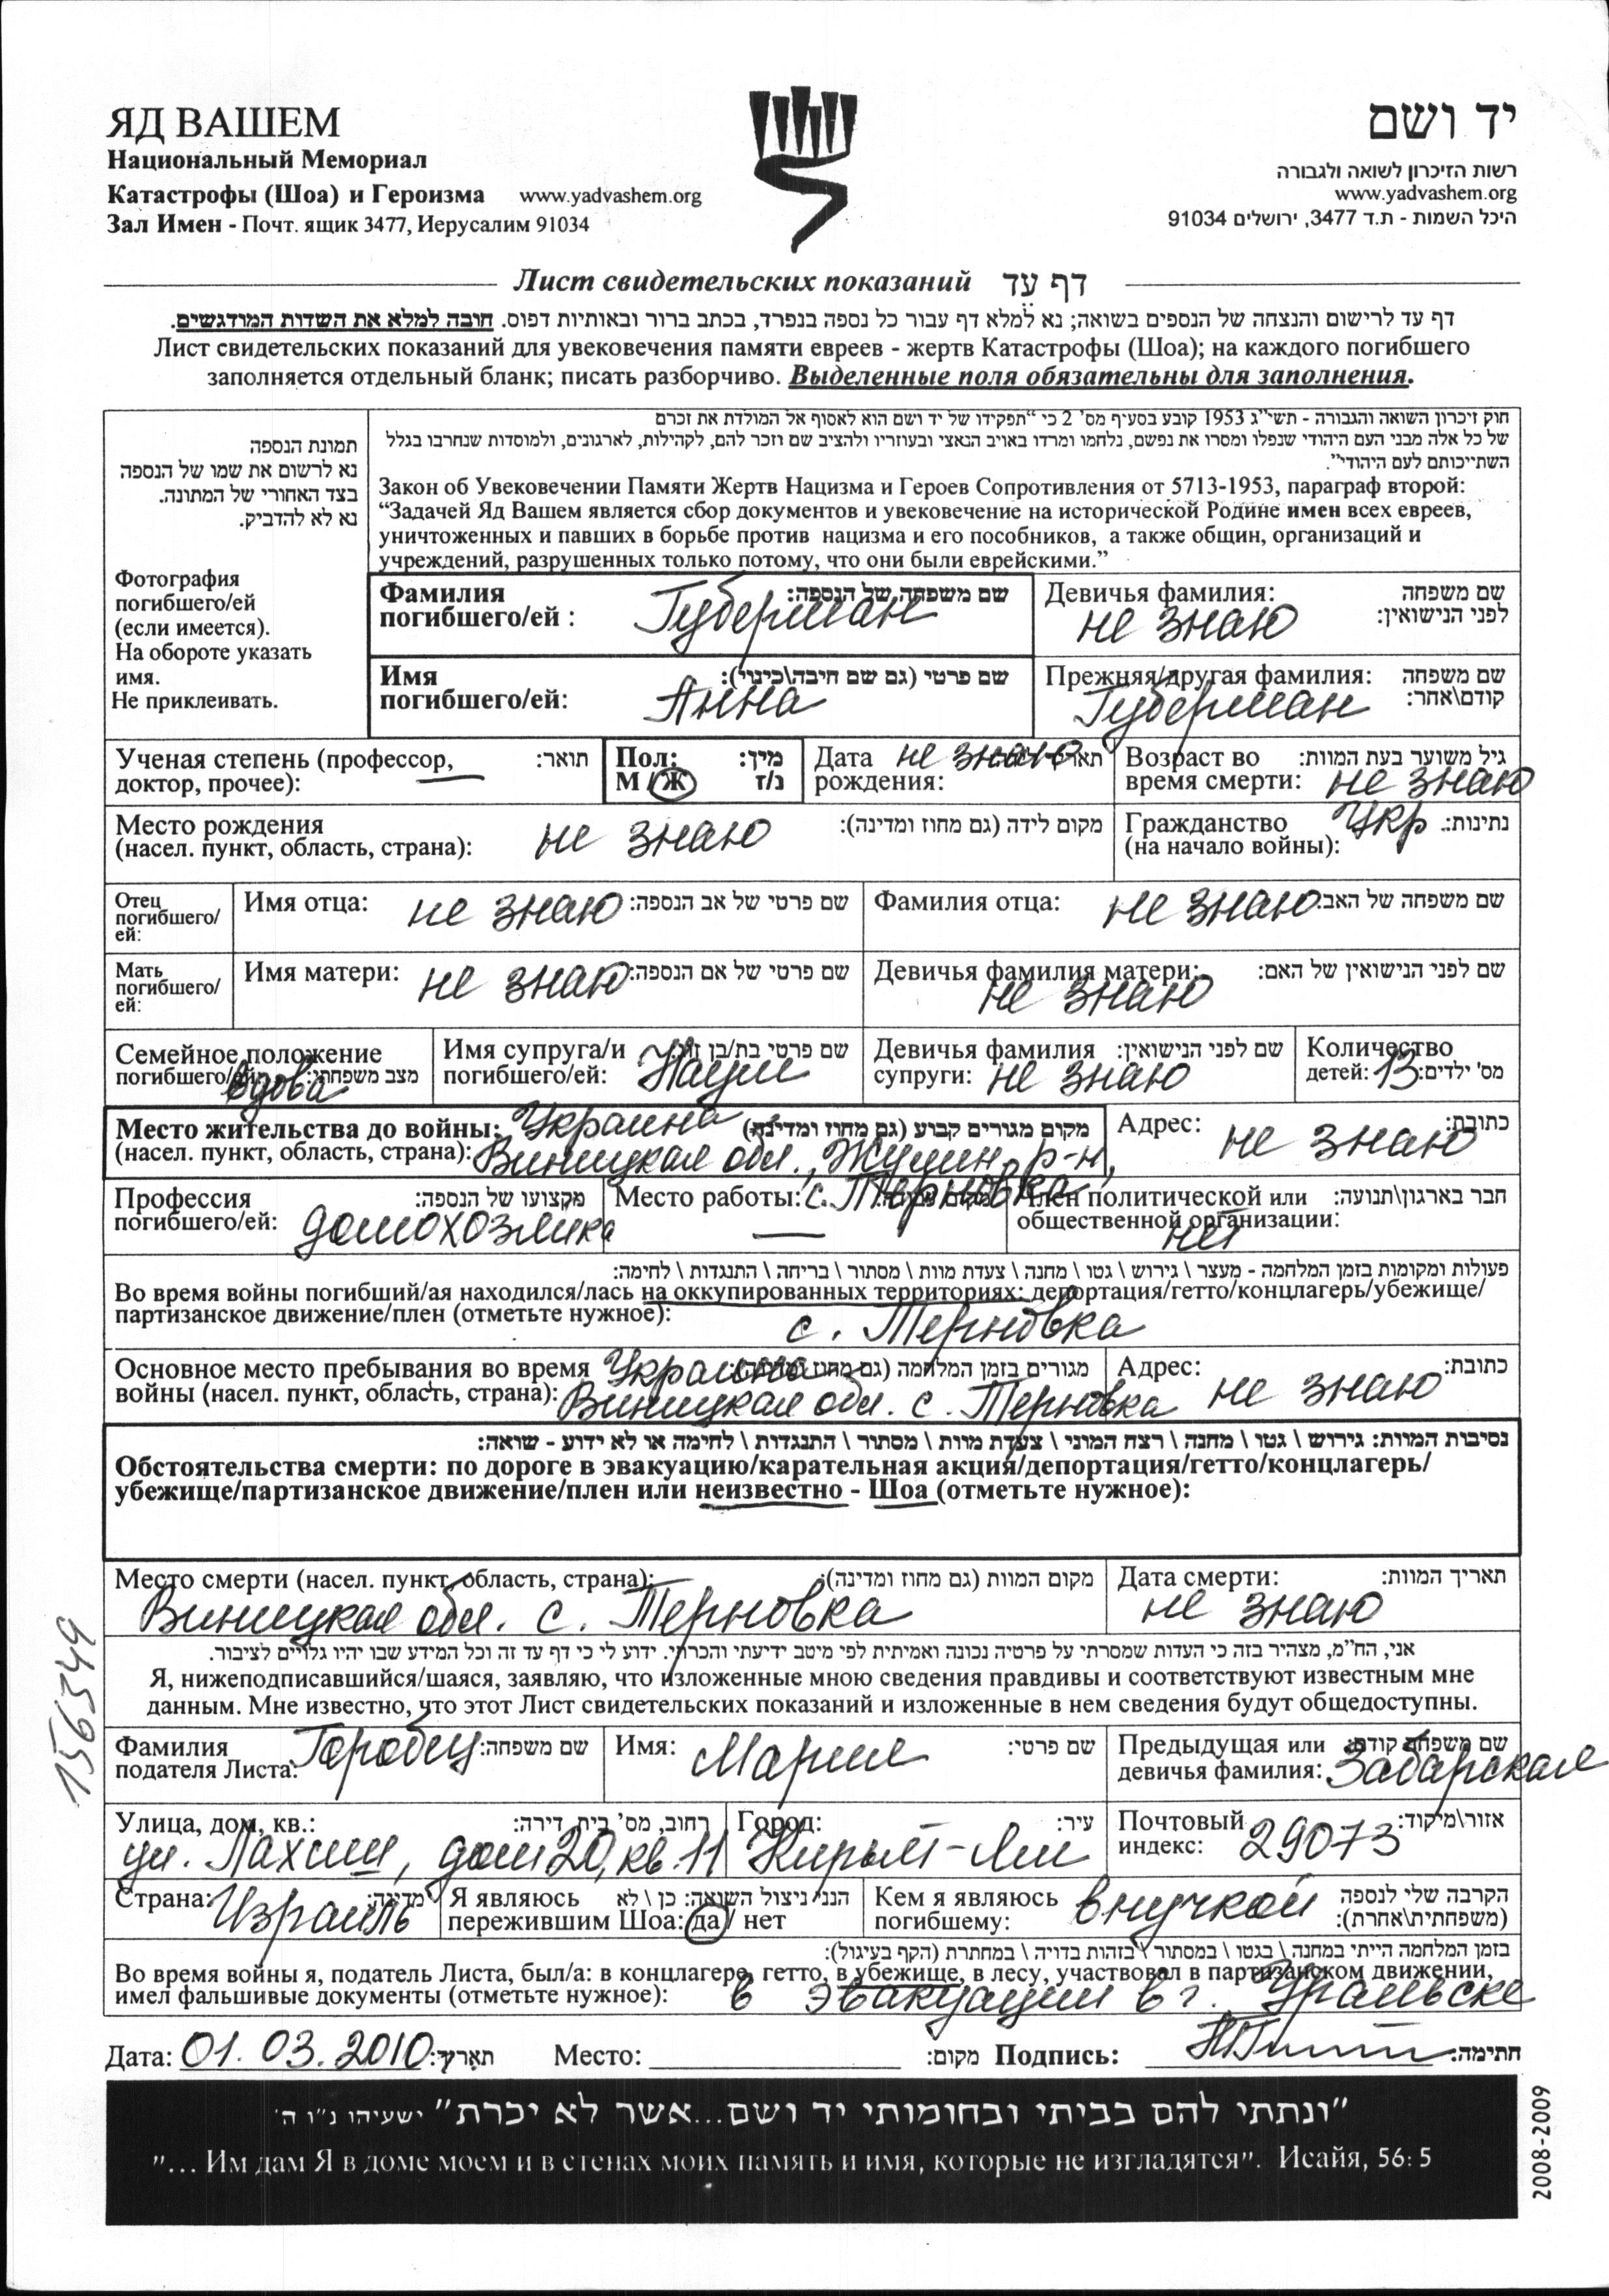 ЯД ВАШЕМ
Национальный Мемориал
Катастрофы (Шоа) и Героизма www.yadvashem.org
Зал Имен - Почт. ящик 3477, Иерусалим 91034
יד ושם
רשות הזיכרון לשואה ולגבורה
www.yadvashem.org
היכל השמות - ת.ד 3477, ירושלים 91034
Лист свидетельских показаний דף עד
דף עד לרישום והנצחה של הנספים בשואה; נא למלא דף עבור כל נספה בנפרד, בכתב ברור ובאותיות דפוס. חובה למלא את השדות המודגשים.
Лист свидетельских показаний для увековечения памяти евреев - жертв Катастрофы (Шоа); на каждого погибшего
заполняется отдельный бланк; писать разборчиво. Выделенные поля обязательны для заполнения.
תמונת הנספה
נא לרשום את שמו של הנספה
בצד האחורי של המתונה.
נא לא להדביק.
Фотография
погибшего/ей
(если имеется).
На обороте указать
имя.
Не приклеивать.
חוק זיכרון השואה והגבורה - תשי"ג 1953 קובע בסעיף מס' 2 כי "תפקידו של יד ושם הוא לאסוף אל המולדת את זכרם
של כל אלה מבני העם היהודי שנפלו ומסרו את נפשם, נלחמו ומרדו באויב הנאצי ובעוזריו ולהציב שם וזכר להם, לקהילות, לארגונים, ולמוסדות שנחרבו בגלל
השתייכותם לעם היהודי".
Закон об Увековечении Памяти Жертв Нацизма и Героев Сопротивления от 5713-1953, параграф второй:
“Задачей Яд Вашем является сбор документов и увековечение на исторической Родине имен всех евреев,
уничтоженных и павших в борьбе против нацизма и его пособников, а также общин, организаций и
учреждений, разрушенных только потому, что они были еврейскими.”
Фамилия погибшего/ей : Губерман שם משפחה של הנספה:
Девичья фамилия: не знаю שם משפחה לפני הנישואין:
Имя погибшего/ей: Анна שם פרטי (גם שם חיבה\כינוי):
Прежняя/другая фамилия: Губерман שם משפחה קודם\אחר:
Ученая степень (профессор, доктор, прочее): — תואר:
Пол: М / Ж מין: נ/ז
Дата рождения: не знаю
Возраст во время смерти: не знаю גיל משוער בעת המוות:
Место рождения (насел. пункт, область, страна): не знаю מקום לידה (גם מחוז ומדינה):
Гражданство (на начало войны): Укр. נתינות:
Отец погибшего/ей: Имя отца: не знаю שם פרטי של אב הנספה:
Фамилия отца: не знаю שם משפחה של האב:
Мать погибшего/ей: Имя матери: не знаю שם פרטי של אם הנספה:
Девичья фамилия матери: не знаю שם לפני הנישואין של האם:
Семейное положение погибшего/ей: вдова מצב משפחתי:
Имя супруга/и погибшего/ей: שם פרטי בת/בן זוג:
Девичья фамилия супруги: не знаю שם לפני הנישואין:
Количество детей: 13 מס' ילדים:
Место жительства до войны: Украина מקום מגורים קבוע (גם מחוז ומדינה)
(насел. пункт, область, страна): Виницкая обл., р-н, с. Терновка
Адрес: не знаю כתובת:
Профессия погибшего/ей: домохозяйка מקצועו של הנספה:
Место работы: —
Член политической или общественной организации: нет חבר בארגון\תנועה:
פעולות ומקומות בזמן המלחמה - מעצר \ גירוש \ גטו \ מחנה \ צעדת מוות \ מסתור \ בריחה \ התנגדות \ לחימה:
Во время войны погибший/ая находился/лась на оккупированных территориях: депортация/гетто/концлагерь/убежище/
партизанское движение/плен (отметьте нужное): с. Терновка
Основное место пребывания во время Украина מגורים בזמן המלחמה (גם מחוז ומדינה):
войны (насел. пункт, область, страна): Виницкая обл. с. Терновка
Адрес: не знаю כתובת:
נסיבות המוות: גירוש \ גטו \ מחנה \ רצח המוני \ צעדת מוות \ מסתור \ התנגדות \ לחימה או לא ידוע - שואה:
Обстоятельства смерти: по дороге в эвакуацию/карательная акция/депортация/гетто/концлагерь/
убежище/партизанское движение/плен или неизвестно - Шоа (отметьте нужное):
Место смерти (насел. пункт, область, страна): מקום המוות (גם מחוז ומדינה):
Виницкая обл. с. Терновка
Дата смерти: не знаю תאריך המוות:
אני, הח"מ, מצהיר בזה כי העדות שמסרתי על פרטיה נכונה ואמיתית לפי מיטב ידיעתי והכרתי. ידוע לי כי דף עד זה וכל המידע שבו יהיו גלויים לציבור.
Я, нижеподписавшийся/шаяся, заявляю, что изложенные мною сведения правдивы и соответствуют известным мне
данным. Мне известно, что этот Лист свидетельских показаний и изложенные в нем сведения будут общедоступны.
Фамилия подателя Листа: Горобец שם משפחה:
Имя: Мария שם פרטי:
Предыдущая или девичья фамилия: Забарская שם משפחה קודם:
Улица, дом, кв.: רחוב, מס' בית, דירה:
ул. Лахиш, дом 20, кв. 11
Город: Кирьят-Ям עיר:
Почтовый индекс: 29073 אזור\מיקוד:
Страна: Израиль מדינה:
Я являюсь пережившим Шоа: да / нет הנני ניצול השואה: כן \ לא
Кем я являюсь погибшему: внучкой הקרבה שלי לנספה (משפחתית\אחרת):
בזמן המלחמה הייתי במחנה \ בגטו \ במסתור \ בזהות בדויה \ במחתרת (הקף בעיגול):
Во время войны я, податель Листа, был/а: в концлагере, гетто, в убежище, в лесу, участвовал в партизанском движении,
имел фальшивые документы (отметьте нужное): в эвакуации в г. Уральске
Дата: 01.03.2010 תאריך: Место: מקום: Подпись: חתימה:
"ונתתי להם בביתי ובחומותי יד ושם...אשר לא יכרת" ישעיהו נ"ו ה'
"... Им дам Я в доме моем и в стенах моих память и имя, которые не изгладятся". Исайя, 56: 5
156349
2008-2009